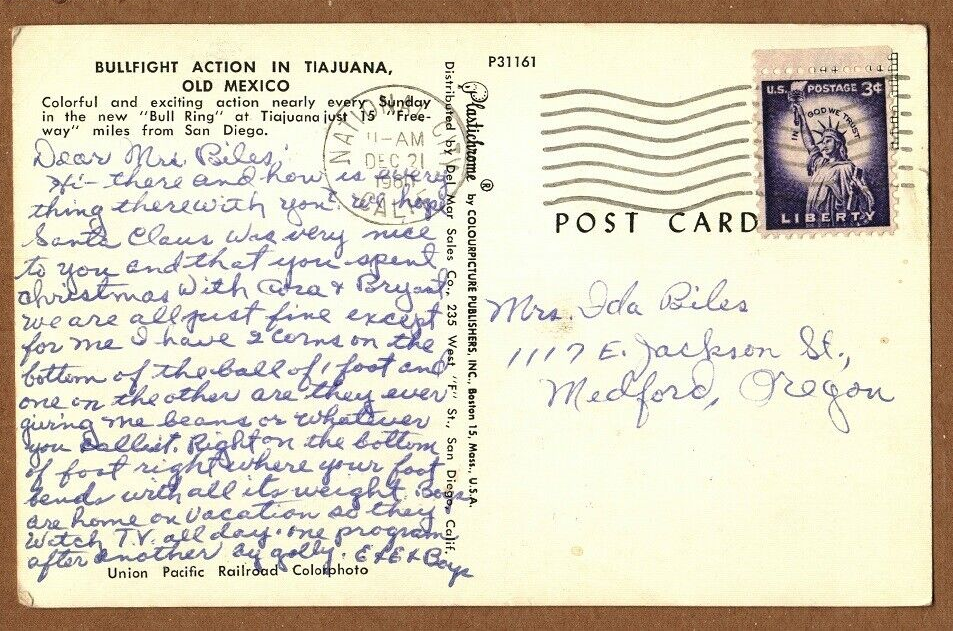 BULLFIGHT ACTION IN TIAJUANA,
OLD MEXICO
Colorful and exciting action nearly every Sunday
in the new "Bull Ring" at Tiajuana just 15 "Free-
way" miles from San Diego.
Dear Mrs Biles,
Hi - there and how is every
thing there with you? we hope
Santa Claus was very nice
to you and that you spent
christmas with Cora & Bryant.
we are all just fine except
for me I have 2 corns on the
bottom of the ball of 1 foot and
one on the other are they ever
giving me beans or whatever
you call it. Right on the bottom
of foot right where your foot
bends with all its weight. Boys
are home on vacation so they
watch T.V. all day. one program
after another by golly. E & E & Boys
Union Pacific Railroad Colorphoto
Distributed by Del Mar Sales Co., 235 West "F" St., San Diego, Calif.
Plastichrome ® by COLOURPICTURE PUBLISHERS, INC., Boston 15, Mass., U.S.A.
P31161
NATIONAL CITY
11-AM
DEC 21
CALIF.
U.S. POSTAGE 3¢
IN GOD WE TRUST
LIBERTY
POST CARD
Mrs. Ida Biles
1117 E. Jackson St.,
Medford, Oregon